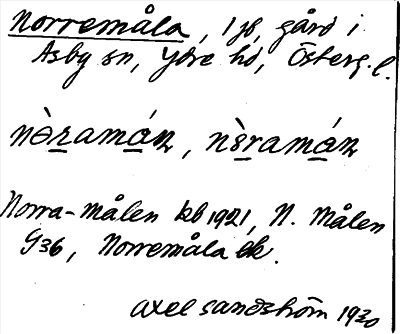 Norremåla, 1 jb, gård i
Asby sn, Ydre hd, Österg. l.
nòramán, nòramán
Norra-Målen kb 1921, N. Målen
G36, Norremåla ek.
Axel Sandström 1930